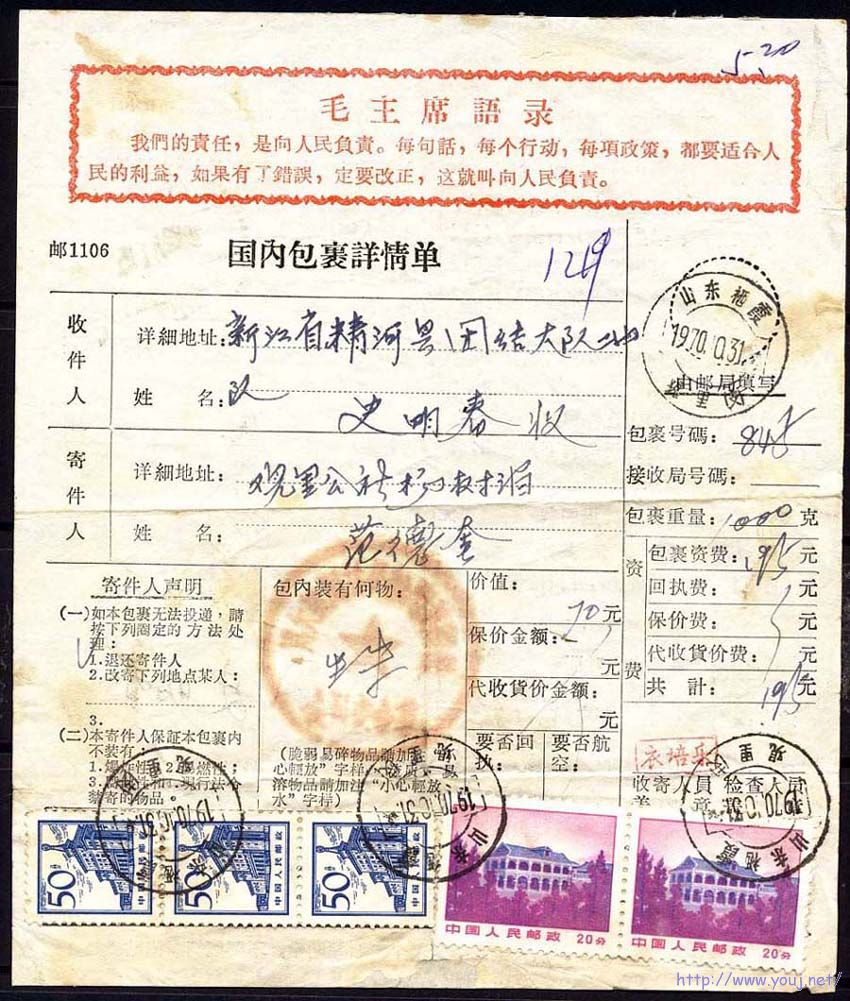 5-20
毛主席語录
我們的責任，是向人民負責。每句話，每个行动，每項政策，都要适合人
民的利益，如果有了錯誤，定要改正，这就叫向人民負責。
邮1106
国内包裹詳情单
山东栖霞
1970.10.31
观里
由邮局填写
收件人
详細地址：新江省精河县团结大队
队
姓名：史明春收
寄件人
详細地址：观里公社
姓名：范德奎
包裹号碼：845
接收局号碼：
包裹重量：1000克
资费
包裹资费：195元
回执费：元
保价费：元
代收貨价费：元
共計：195元
寄件人声明
(一)如本包裹无法投递，請
按下列圈定的方法处
理：
1.退还寄件人
2.改寄下列地点某人：
3.
(二)本寄件人保証本包裹内
不装有：
寄的物品。
包内装有何物：
价值：
70元
保价金额：
元
代收貨价金额：
元
要否回执：
要否航空：
(脆弱易碎物品請加注“小
心輕放”字样，
溶物品請加注“小心輕放
水”字样)
衣培兵
收寄人員
检查人員
盖章
山东栖霞
1970.10.31
观里
山东栖霞
1970.10.31
观里
山东栖霞
1970.10.31
观里
50
中国人民邮政
50
中国人民邮政
50
中国人民邮政
中国人民邮政 20分
中国人民邮政 20分
http://www.youj.net/